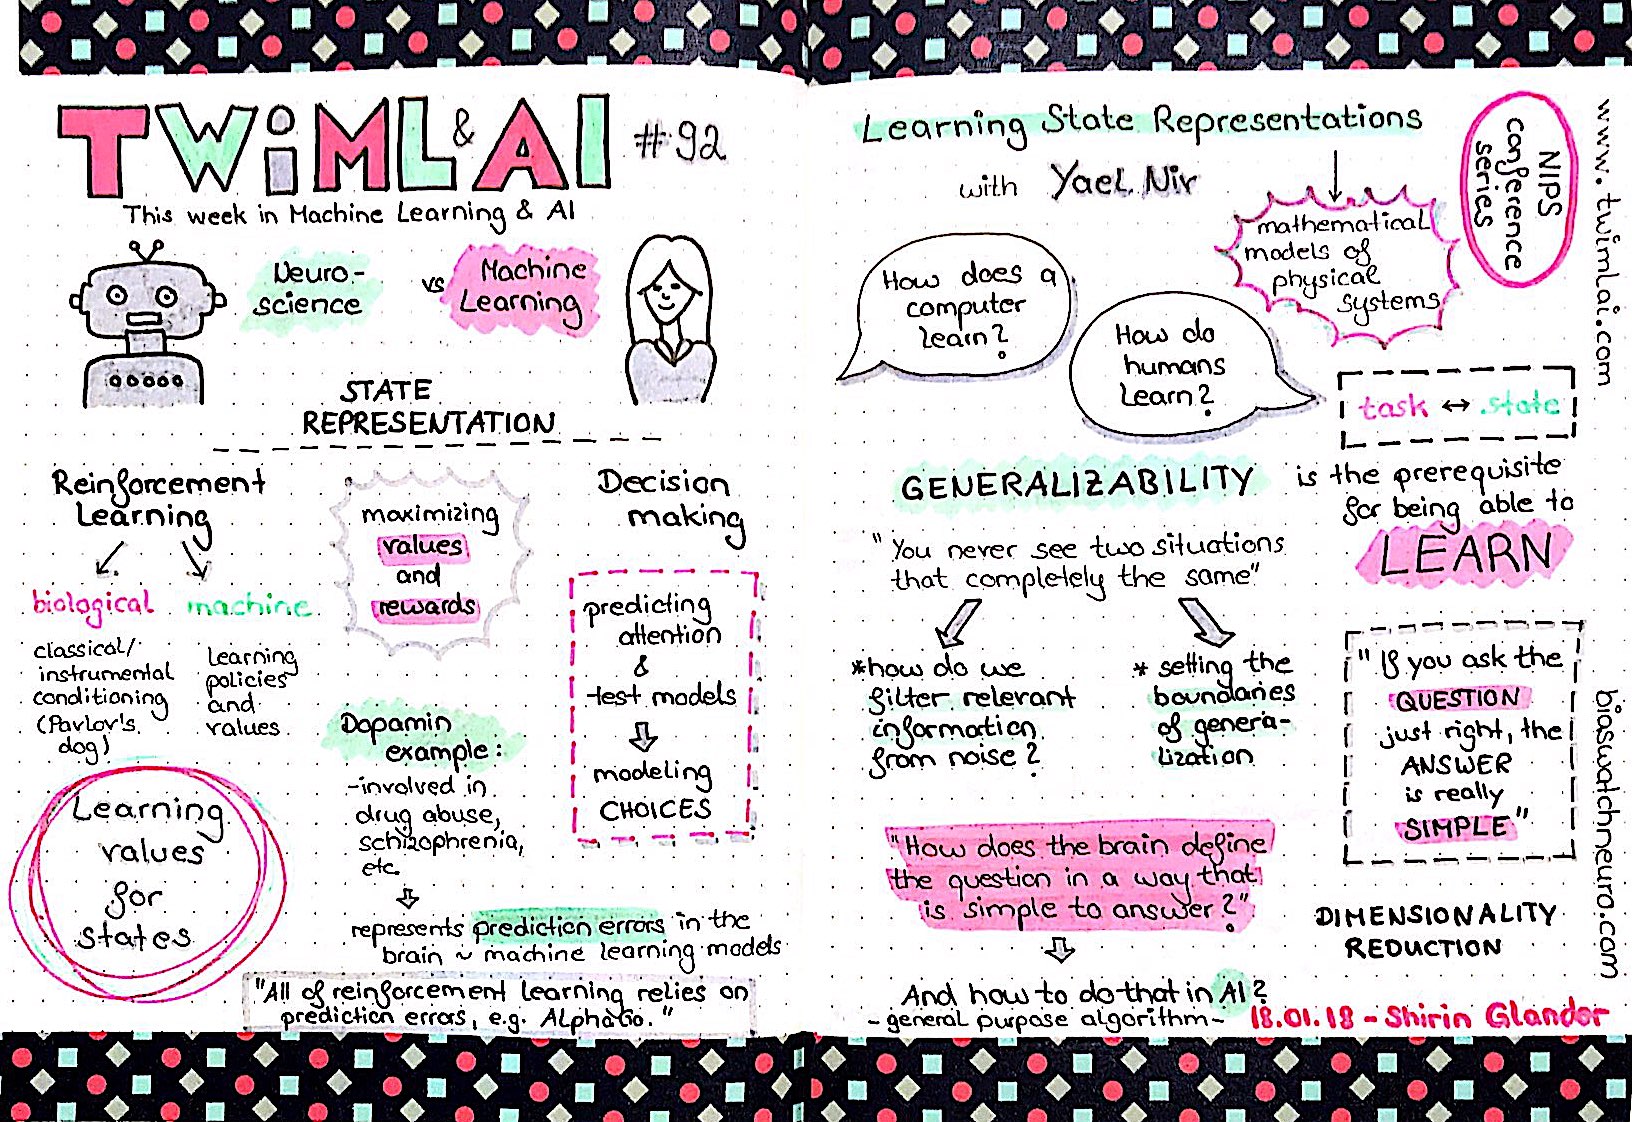 TWiML & AI #92
This week in Machine Learning & AI
Neuro-
science
vs
Machine
Learning
STATE
REPRESENTATION
Reinforcement
Learning
biological
classical/
instrumental
conditioning
(Pavlov's
dog)
machine
learning
policies
and
values
maximizing
values
and
rewards
Decision
making
predicting
attention
&
test models
modeling
CHOICES
Learning
values
for
states
Dopamin
example:
-involved in
drug abuse,
schizophrenia,
etc.
represents prediction errors in the
brain ~ machine learning models
"All of reinforcement learning relies on
prediction errors, e.g. AlphaGo."
Learning State Representations
with Yael Niv
mathematical
models of
physical
systems
NIPS
conference
series
www.twimlai.com
How does a
computer
learn?
How do
humans
learn?
task ↔ state
GENERALIZABILITY is the prerequisite
for being able to
LEARN
"You never see two situations
that completely the same"
*how do we
filter relevant
information
from noise?
* setting the
boundaries
of genera-
lization
"If you ask the
QUESTION
just right, the
ANSWER
is really
SIMPLE"
"How does the brain define
the question in a way that
is simple to answer?"
DIMENSIONALITY
REDUCTION
And how to do that in AI?
- general purpose algorithm -
biaswatchneuro.com
18.01.18 - Shirin Glander